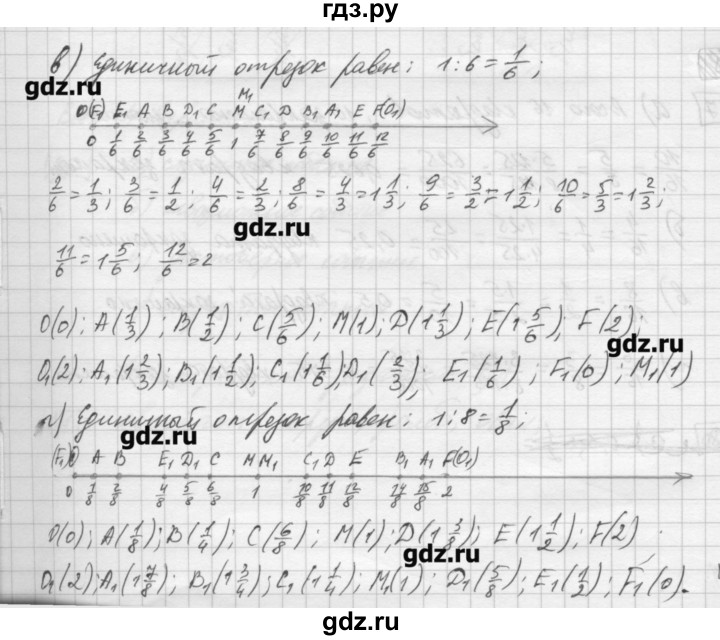 гдз.ру
в) Единичный отрезок равен: 1:6 = 1/6;
gdz.ru
M₁
O(F₁) E₁ A B D₁ C M C₁ D B₁ A₁ E F(O₁)
0 1/6 2/6 3/6 4/6 5/6 1 7/6 8/6 9/6 10/6 11/6 12/6
2/6 = 1/3; 3/6 = 1/2; 4/6 = 2/3; 8/6 = 4/3 = 1 1/3; 9/6 = 3/2 = 1 1/2; 10/6 = 5/3 = 1 2/3;
gdz.ru
11/6 = 1 5/6; 12/6 = 2
O(0); A(1/3); B(1/2); C(5/6); M(1); D(1 1/3); E(1 5/6); F(2);
gdz.ru
O₁(2); A₁(1 2/3); B₁(1 1/2); C₁(1 1/6); D₁(2/3); E₁(1/6); F₁(0); M₁(1)
г) Единичный отрезок равен: 1:8 = 1/8;
gdz.ru
(F₁)O A B E₁ D₁ C M M₁ C₁ D E B₁ A₁ F(O₁)
0 1/8 2/8 4/8 5/8 6/8 1 10/8 11/8 12/8 14/8 15/8 2
O(0); A(1/8); B(1/4); C(6/8); M(1); D(1 3/8); E(1 1/2); F(2)
gdz.ru
O₁(2); A₁(1 7/8); B₁(1 3/4); C₁(1 1/4); M₁(1); D₁(5/8); E₁(1/2); F₁(0).
gdz.ru